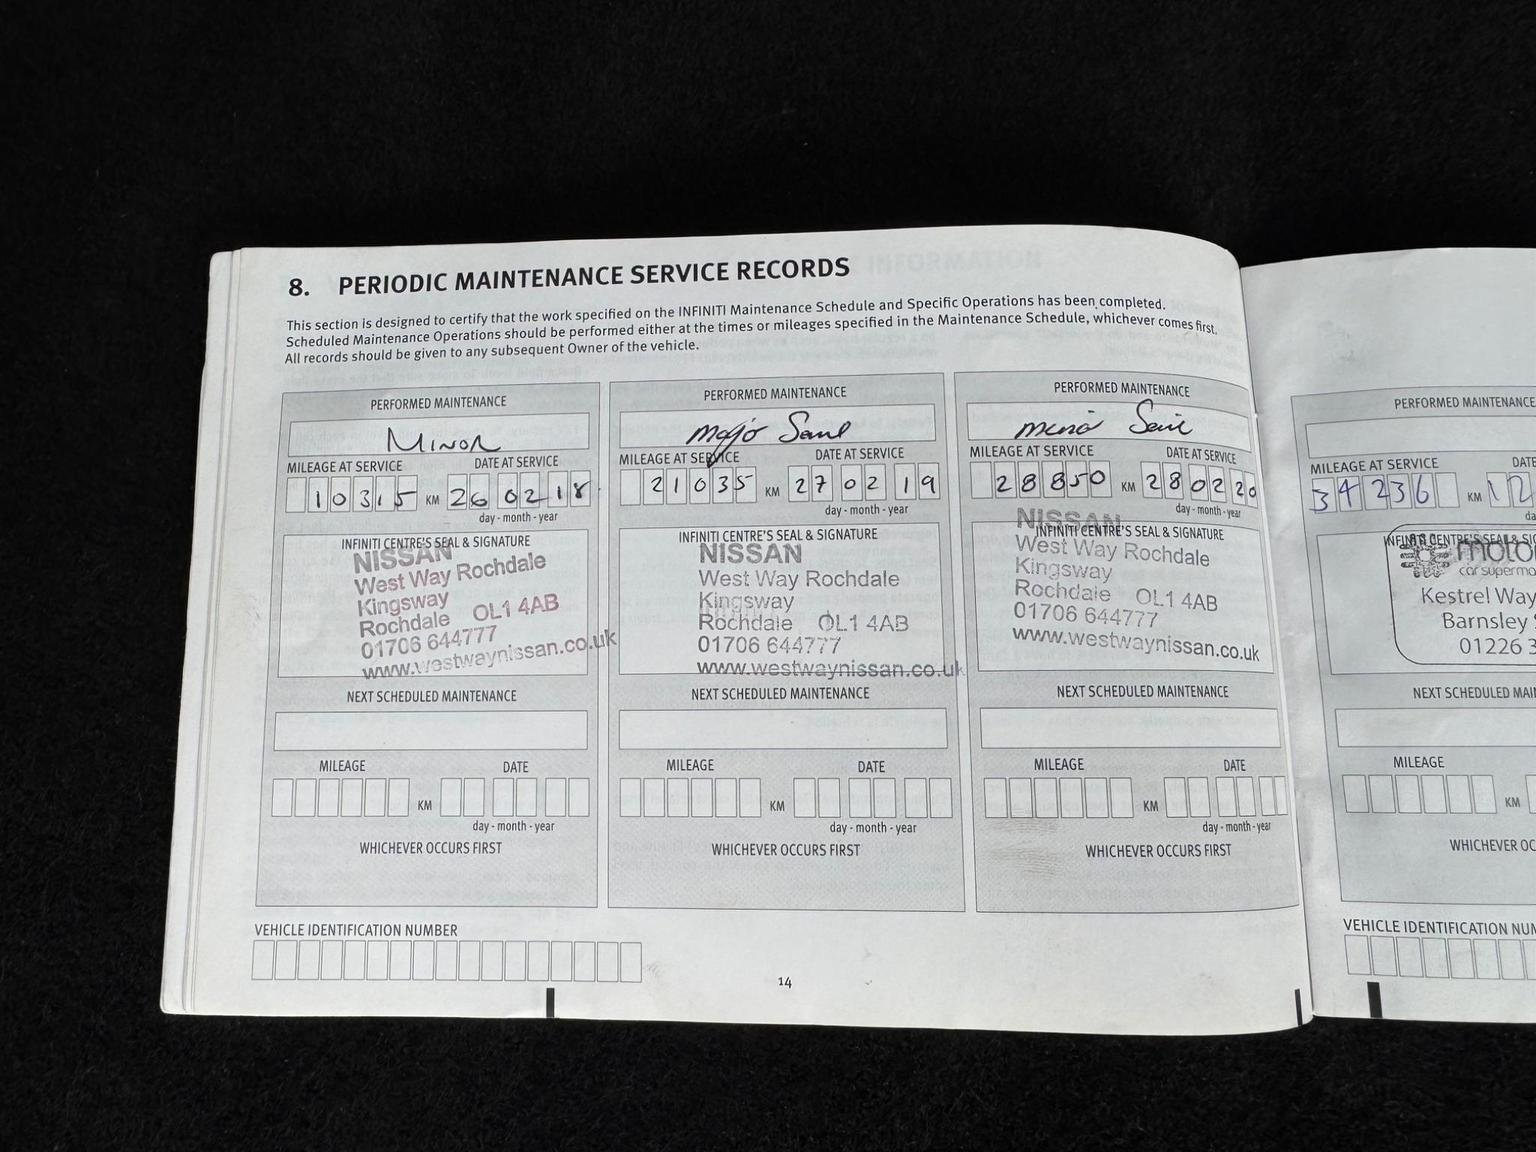 8. PERIODIC MAINTENANCE SERVICE RECORDS
This section is designed to certify that the work specified on the INFINITI Maintenance Schedule and Specific Operations has been completed.
Scheduled Maintenance Operations should be performed either at the times or mileages specified in the Maintenance Schedule, whichever comes first.
All records should be given to any subsequent Owner of the vehicle.
PERFORMED MAINTENANCE
MINOR
MILEAGE AT SERVICE DATE AT SERVICE
10315 KM 26 02 18
day - month - year
INFINITI CENTRE'S SEAL & SIGNATURE
NISSAN
West Way Rochdale
Kingsway
Rochdale OL1 4AB
01706 644777
www.westwaynissan.co.uk
NEXT SCHEDULED MAINTENANCE
MILEAGE DATE
KM
day - month - year
WHICHEVER OCCURS FIRST
PERFORMED MAINTENANCE
Major
MILEAGE AT SERVICE DATE AT SERVICE
21035 KM 27 02 19
day - month - year
INFINITI CENTRE'S SEAL & SIGNATURE
NISSAN
West Way Rochdale
Kingsway
Rochdale OL1 4AB
01706 644777
www.westwaynissan.co.uk
NEXT SCHEDULED MAINTENANCE
MILEAGE DATE
KM
day - month - year
WHICHEVER OCCURS FIRST
PERFORMED MAINTENANCE
MILEAGE AT SERVICE DATE AT SERVICE
28850 KM 28 02 20
day - month - year
INFINITI CENTRE'S SEAL & SIGNATURE
NISSAN
West Way Rochdale
Kingsway
Rochdale OL1 4AB
01706 644777
www.westwaynissan.co.uk
NEXT SCHEDULED MAINTENANCE
MILEAGE DATE
KM
day - month - year
WHICHEVER OCCURS FIRST
VEHICLE IDENTIFICATION NUMBER
14
PERFORMED MAINTENANCE
MILEAGE AT SERVICE DATE
34236 KM 12
INFINITI CENTRE'S SEAL &
car
Kestrel Way
Barnsley
01226 3
NEXT SCHEDULED
MILEAGE
KM
WHICHEVER
VEHICLE IDENTIFICATION